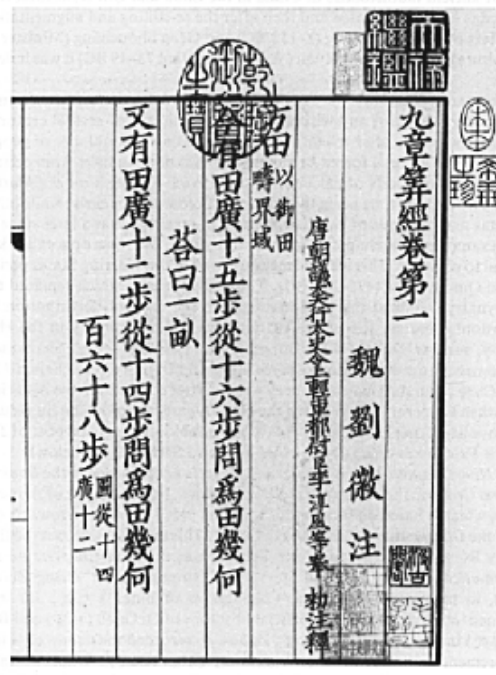 天祿繼鑑
乾隆御覽之寶
九章筭經卷第一
魏劉徽注
唐朝議大夫行太史令上輕車都尉臣李淳風等奉 勑注釋
方田以御田疇界域
今有田廣十五步從十六步問爲田幾何
荅曰一畝
又有田廣十二步從十四步問爲田幾何
百六十八步圖從十四廣十二